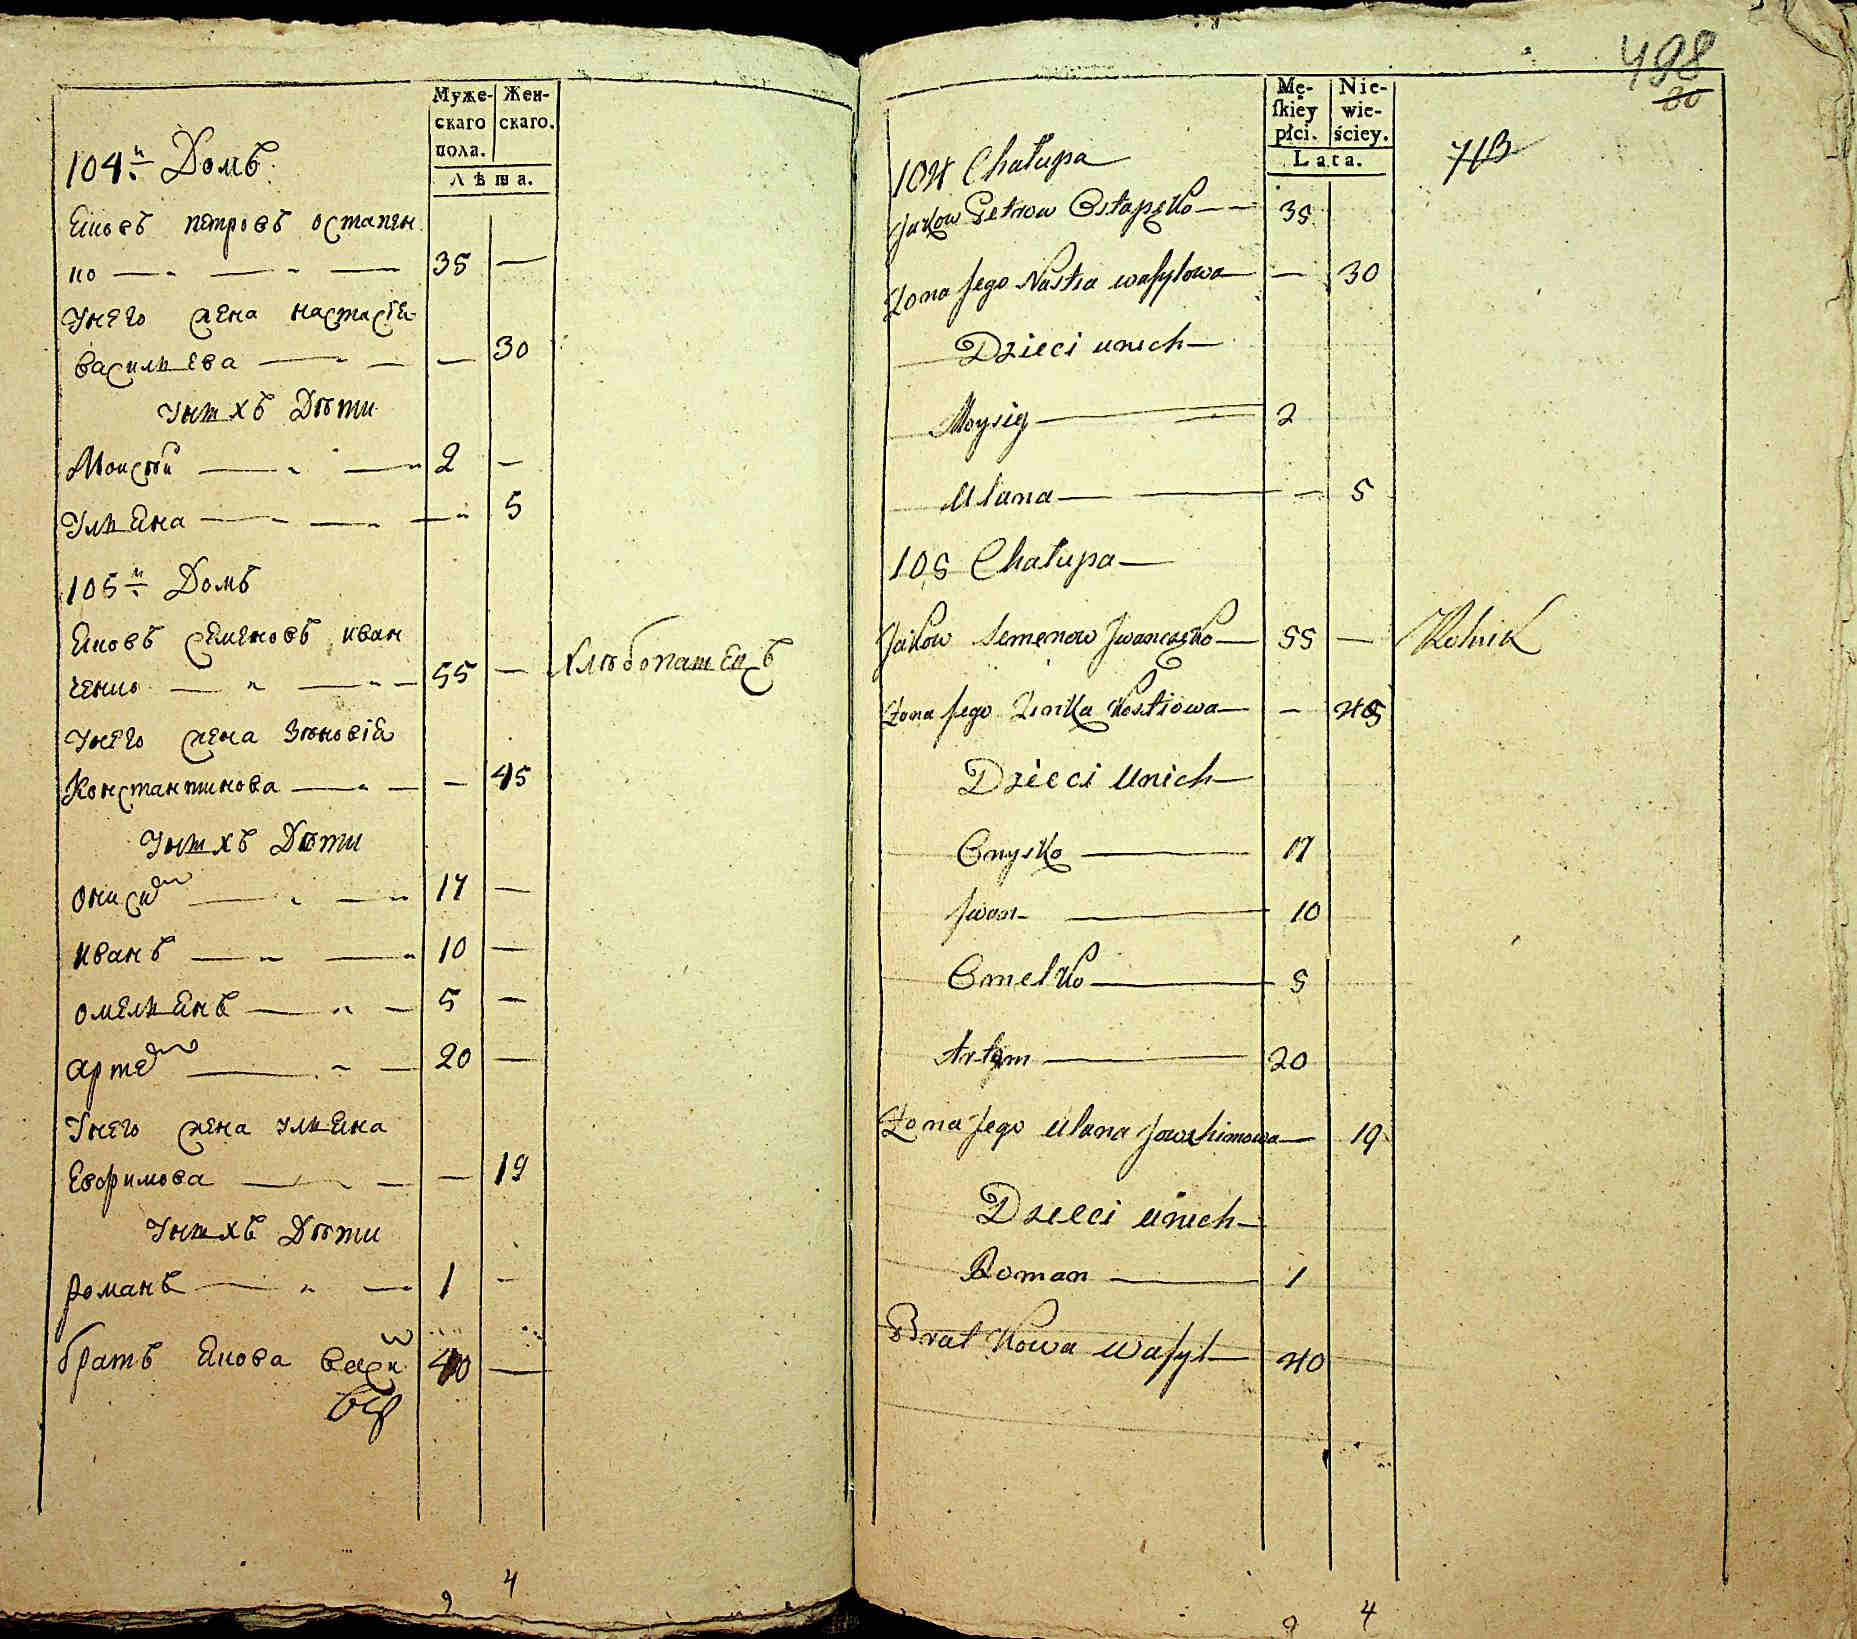 Муже-
скаго
пола.
Жен-
скаго.
Лѣта.
104й Домъ
Яковъ Петровъ Остапен
ко 35 —
У него жена Настасія
Васильева — 30
У нихъ Дѣти
Моисѣй 2 —
Ульяна — 5
105й Домъ
Яковъ Семеновъ Иван
ченко 55 — Хлѣбопашецъ
У него жена Зѣновія
Константинова — 45
У нихъ Дѣти
Ониси 17 —
Иванъ 10 —
Омельянъ 5 —
Арте 20 —
У него жена Ульяна
Евфимова — 19
У нихъ Дѣти
Романъ 1 —
братъ Якова Васи 40 —
9 4
498
30
Mę-
skiey
płci.
Nie-
wie-
ściey.
Lata.
713
104 Chałupa
Jakow Petrow Ostapęko 35
Żona Jego Nastia Wasylowa — 30
Dzieci u nich
Moysiy 2
Ulana — 5
105 Chałupa
Jakow Semenow Jwanczęko 55 — Rolnik
Żona Jego Zinka Kostiowa — 45
Dzieci U nich
Onysko 17
Jwan 10
Omelko 5
Artym 20
Żona Jego Ulana Jowchimowa 19
Dzieci u nich
Roman 1
Brat Kowa Wasyl 40
9 4